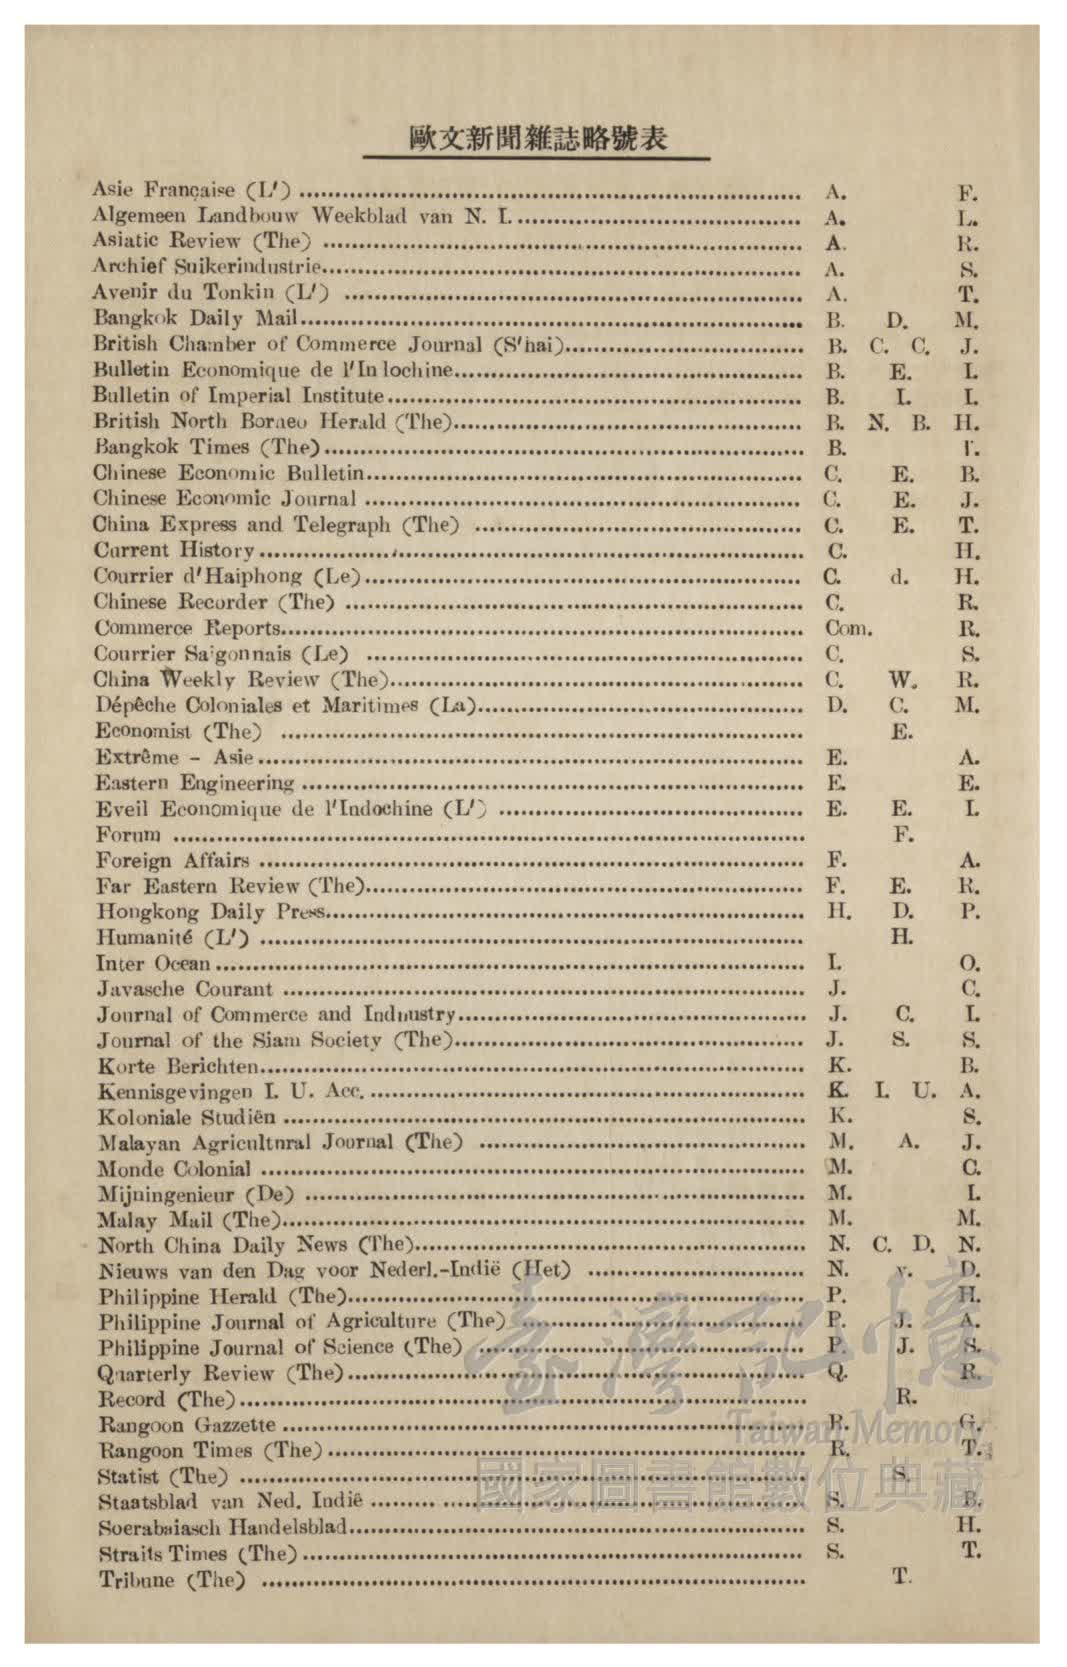 歐文新聞雜誌略號表
Asie Française (L') A. F.
Algemeen Landbouw Weekblad van N. I. A. L.
Asiatic Review (The) A. R.
Archief Suikerindustrie A. S.
Avenir du Tonkin (L') A. T.
Bangkok Daily Mail B. D. M.
British Chamber of Commerce Journal (S'hai) B. C. C. J.
Bulletin Economique de l'In lochine B. E. I.
Bulletin of Imperial Institute B. I. I.
British North Borneo Herald (The) B. N. B. H.
Bangkok Times (The) B. T.
Chinese Economic Bulletin C. E. B.
Chinese Economic Journal C. E. J.
China Express and Telegraph (The) C. E. T.
Current History C. H.
Courrier d'Haiphong (Le) C. d. H.
Chinese Recorder (The) C. R.
Commerce Reports Com. R.
Courrier Saigonnais (Le) C. S.
China Weekly Review (The) C. W. R.
Dépêche Coloniales et Maritimes (La) D. C. M.
Economist (The) E.
Extrême - Asie E. A.
Eastern Engineering E. E.
Eveil Economique de l'Indochine (L') E. E. I.
Forum F.
Foreign Affairs F. A.
Far Eastern Review (The) F. E. R.
Hongkong Daily Press H. D. P.
Humanité (L') H.
Inter Ocean I. O.
Javasche Courant J. C.
Journal of Commerce and Indnustry J. C. I.
Journal of the Siam Society (The) J. S. S.
Korte Berichten K. B.
Kennisgevingen I. U. Acc. K. I. U. A.
Koloniale Studiën K. S.
Malayan Agricultnral Journal (The) M. A. J.
Monde Colonial M. C.
Mijningenieur (De) M. I.
Malay Mail (The) M. M.
North China Daily News (The) N. C. D. N.
Nieuws van den Dag voor Nederl.-Indië (Het) N. v. D.
Philippine Herald (The) P. H.
Philippine Journal of Agriculture (The) P. J. A.
Philippine Journal of Science (The) P. J. S.
Quarterly Review (The) Q. R.
Record (The) R.
Rangoon Gazzette R. G.
Rangoon Times (The) R. T.
Statist (The) S.
Staatsblad van Ned. Indië S. B.
Soerabaiasch Handelsblad S. H.
Straits Times (The) S. T.
Tribune (The) T.
臺灣記憶
Taiwan Memory
國家圖書館數位典藏